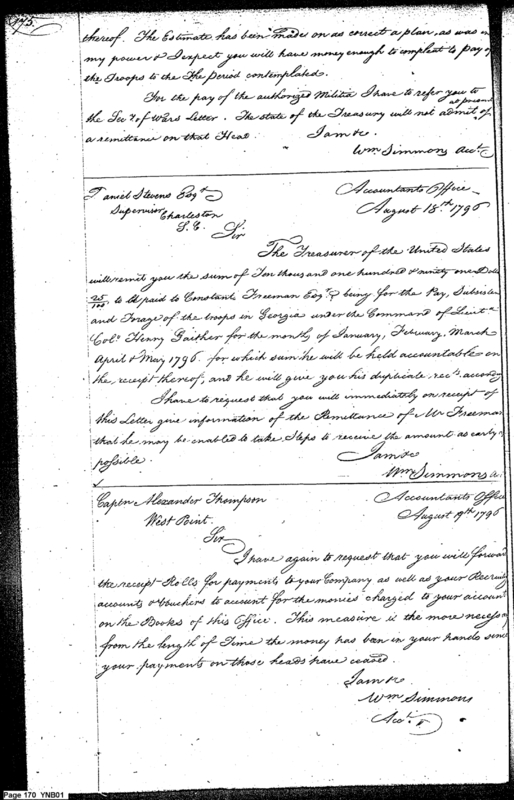 175.
thereof. The Estimate has been made on as correct a plan, as was in
my power & I expect you will have money enough to compleat to pay of
the Troops to the the period contemplated.
For the pay of the authorized Militia I have to refer you to
the Secy of Wars Letter. The state of the Treasury will not at present admit of
a remittance on that Head. I am &c
Wm Simmons Acct.
Daniel Stevens Esqr
Supervisor Charleston
S. C.
Accountants Office
August 18th 1796
Sir
The Treasurer of the United States
will remit you the sum of Ten thousand one hundred & ninety one Dols
25/100 to be paid to Constant Freeman Esqr. being for the Pay, Subsisten
and Forage of the troops in Georgia under the Command of Lieut
Colo Henry Gaither for the months of January, February, March
April & May 1796 for which sum he will be held accountable on
the receipt thereof, and he will give you his duplicate rects. accordg
I have to request that you will immediately on receipt of
this Letter give information of the Remittance of Mr Freeman
that he may be enabled to take Steps to receive the amount as early as
possible.
I am &c
Wm Simmons a.
Captn Alexander Thompson
West Point.
Accountants Office
August 19th 1796
Sir
I have again to request that you will forward
the receipt Rolls for payments to your Company as well as your Recruiting
accounts & Vouchers to account for the monies charged to your account
on the Books of this Office. This measure is the more necessary
from the length of Time the money has been in your hands since
your payments on those heads have ceased.
I am &c
Wm Simmons
Acct.
Page 170 YNB01